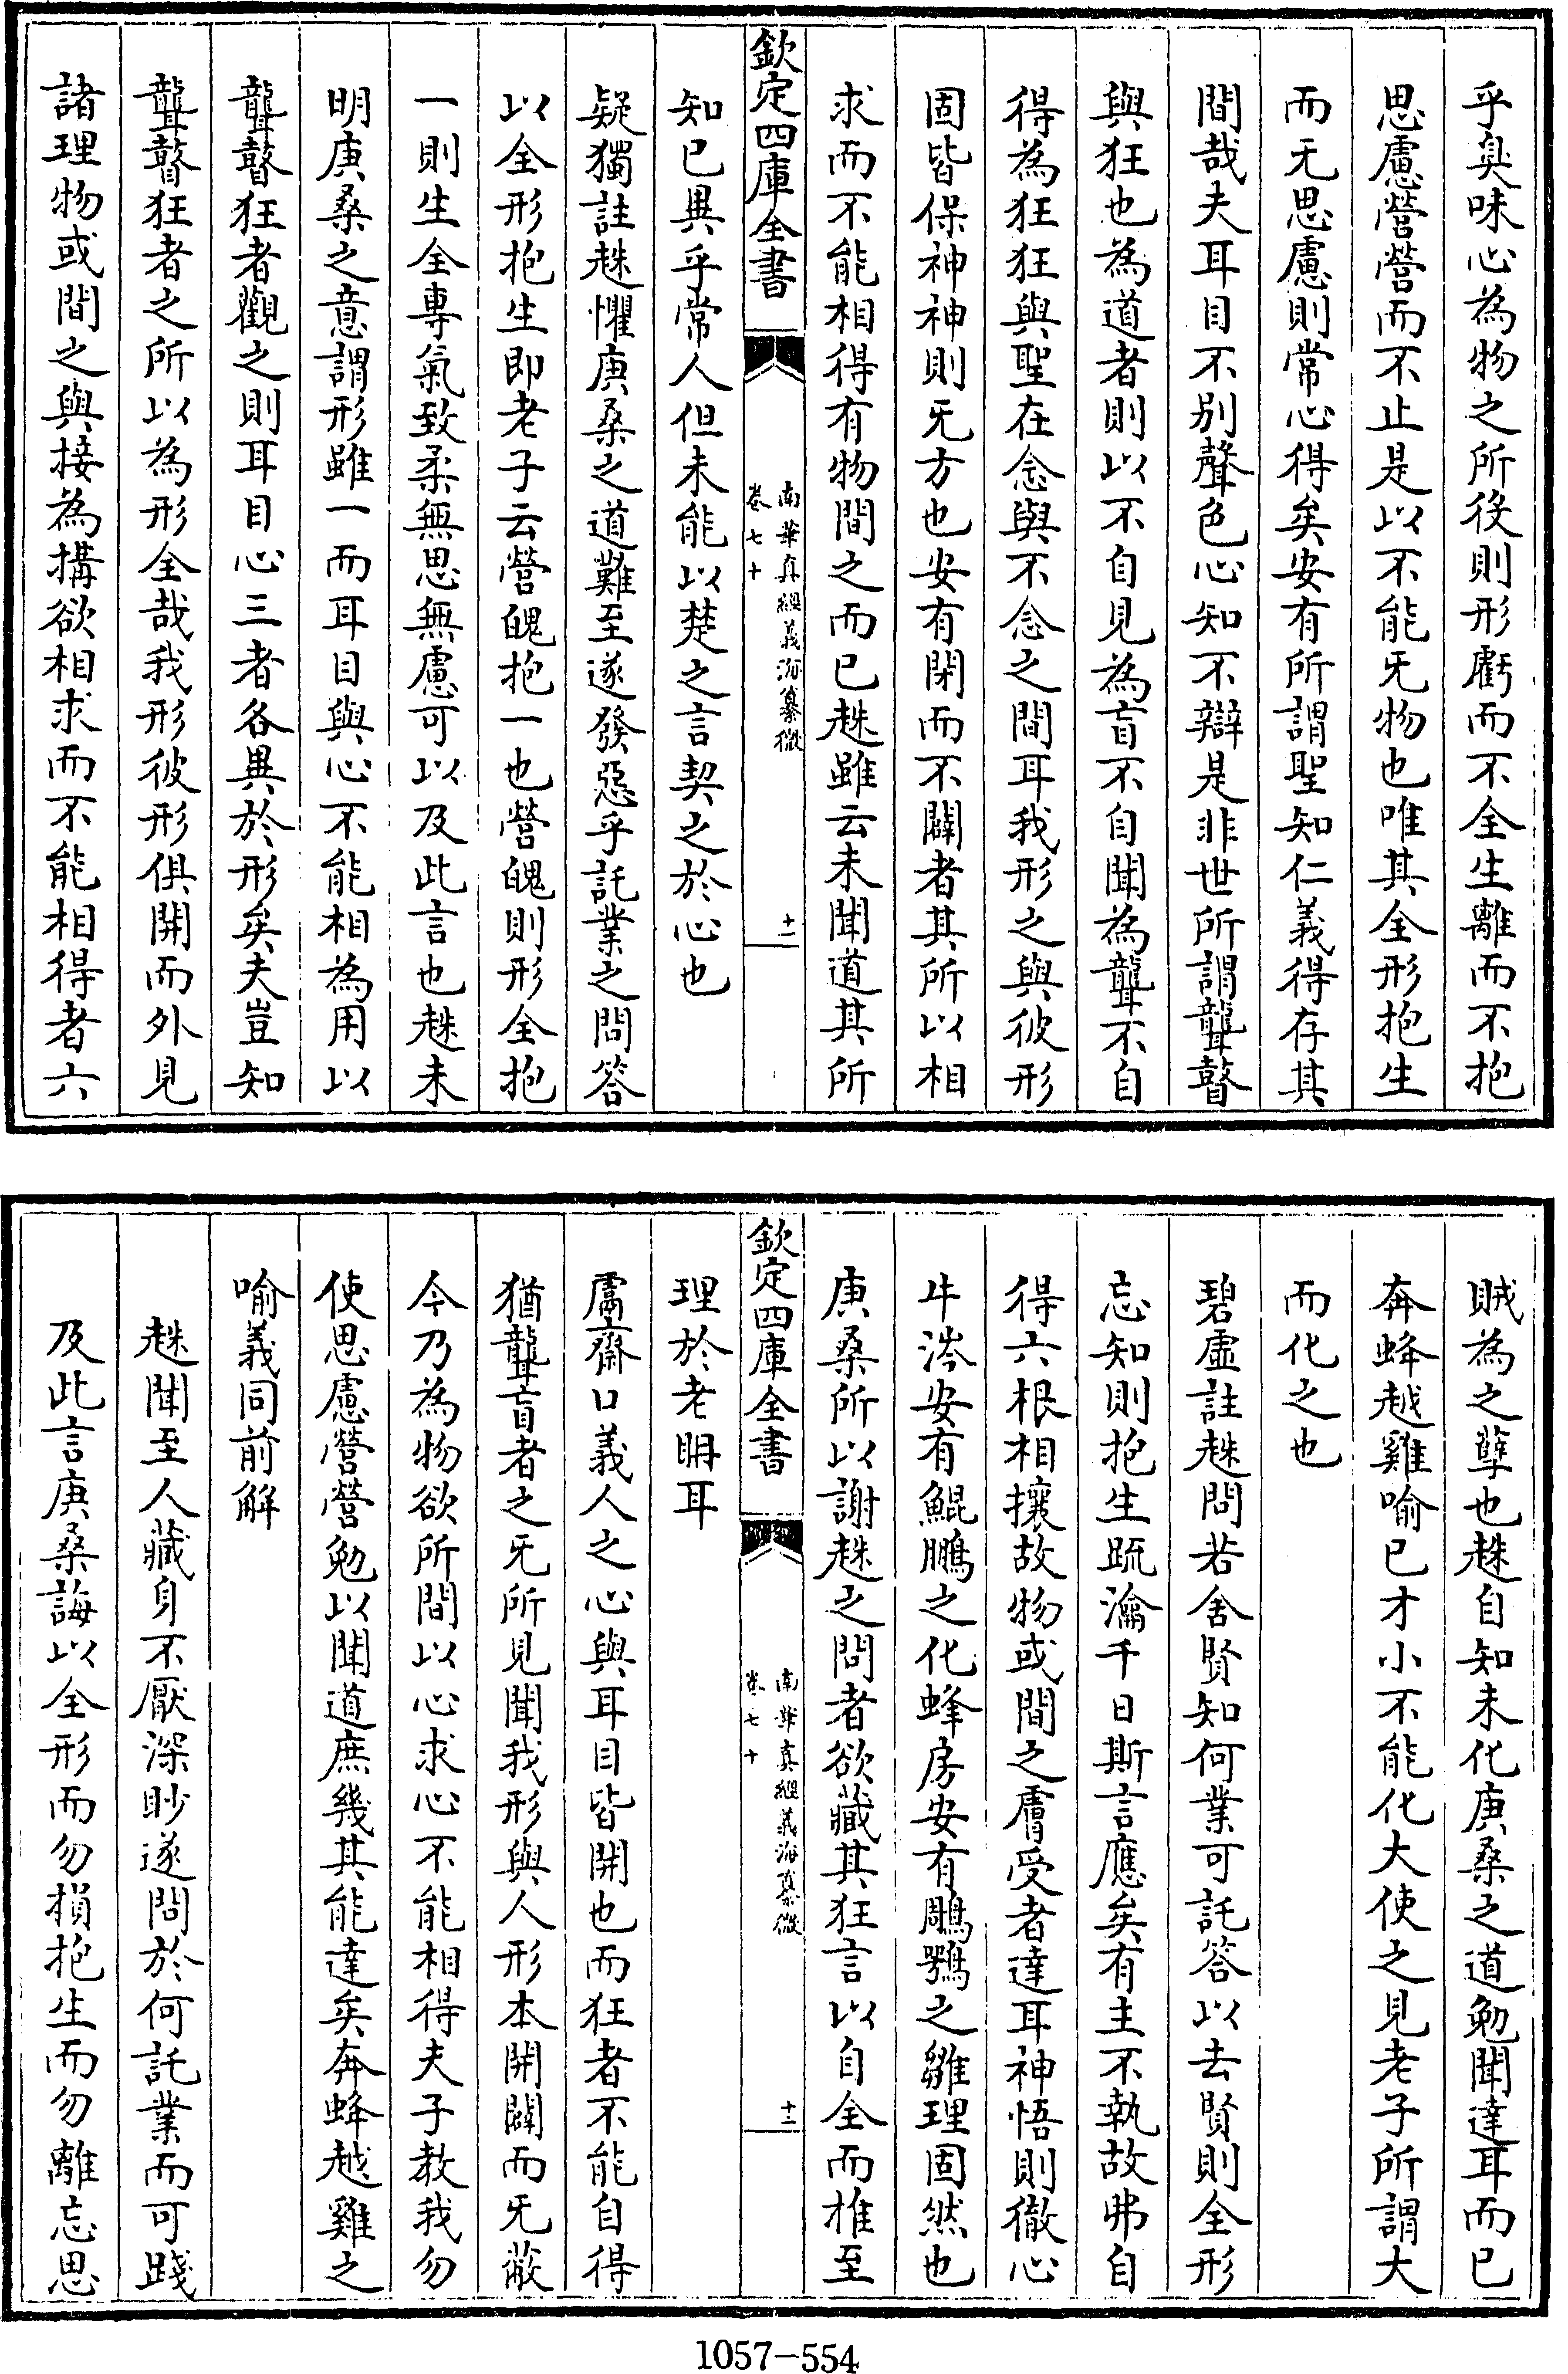 乎臭味心為物之所役則形虧而不全生離而不抱
思慮營營而不止是以不能无物也唯其全形抱生
而无思慮則常心得矣安有所謂聖知仁義得存其
間哉夫耳目不别聲色心知不辯是非世所謂聾瞽
與狂也為道者則以不自見為盲不自聞為聾不自
得為狂狂與聖在念與不念之間耳我形之與彼形
固皆保神神則无方也安有閉而不闢者其所以相
求而不能相得有物間之而已趎雖云未聞道其所
欽定四庫全書
南華真經義海纂微
卷七十
十一
知已異乎常人但未能以楚之言契之於心也
疑獨註趎懼庚桑之道難至遂發惡乎託業之問答
以全形抱生即老子云營魄抱一也營魄則形全抱
一則生全專氣致柔無思無慮可以及此言也趎未
明庚桑之意謂形雖一而耳目與心不能相為用以
聾瞽狂者觀之則耳目心三者各異於形矣夫豈知
聾瞽狂者之所以為形全哉我形彼形俱開而外見
諸理物或間之與接為搆欲相求而不能相得者六
賊為之孽也趎自知未化庚桑之道勉聞達耳而已
奔蜂越雞喻已才小不能化大使之見老子所謂大
而化之也
碧虛註趎問若舍賢知何業可託答以去賢則全形
忘知則抱生疏瀹千日斯言應矣有主不執故弗自
得六根相攘故物或間之膚受者達耳神悟則徹心
牛涔安有鯤鵬之化蜂房安有鵰鶚之雛理固然也
庚桑所以謝趎之問者欲藏其狂言以自全而推至
欽定四庫全書
南華真經義海纂微
卷七十
十二
理於老耼耳
鬳齋口義人之心與耳目皆開也而狂者不能自得
猶聾盲者之无所見聞我形與人形本開闢而无蔽
今乃為物欲所間以心求心不能相得夫子教我勿
使思慮營營勉以聞道庶幾其能達矣奔蜂越雞之
喻義同前解
趎聞至人藏身不厭深眇遂問於何託業而可踐
及此言庚桑誨以全形而勿損抱生而勿離忘思
1057-554